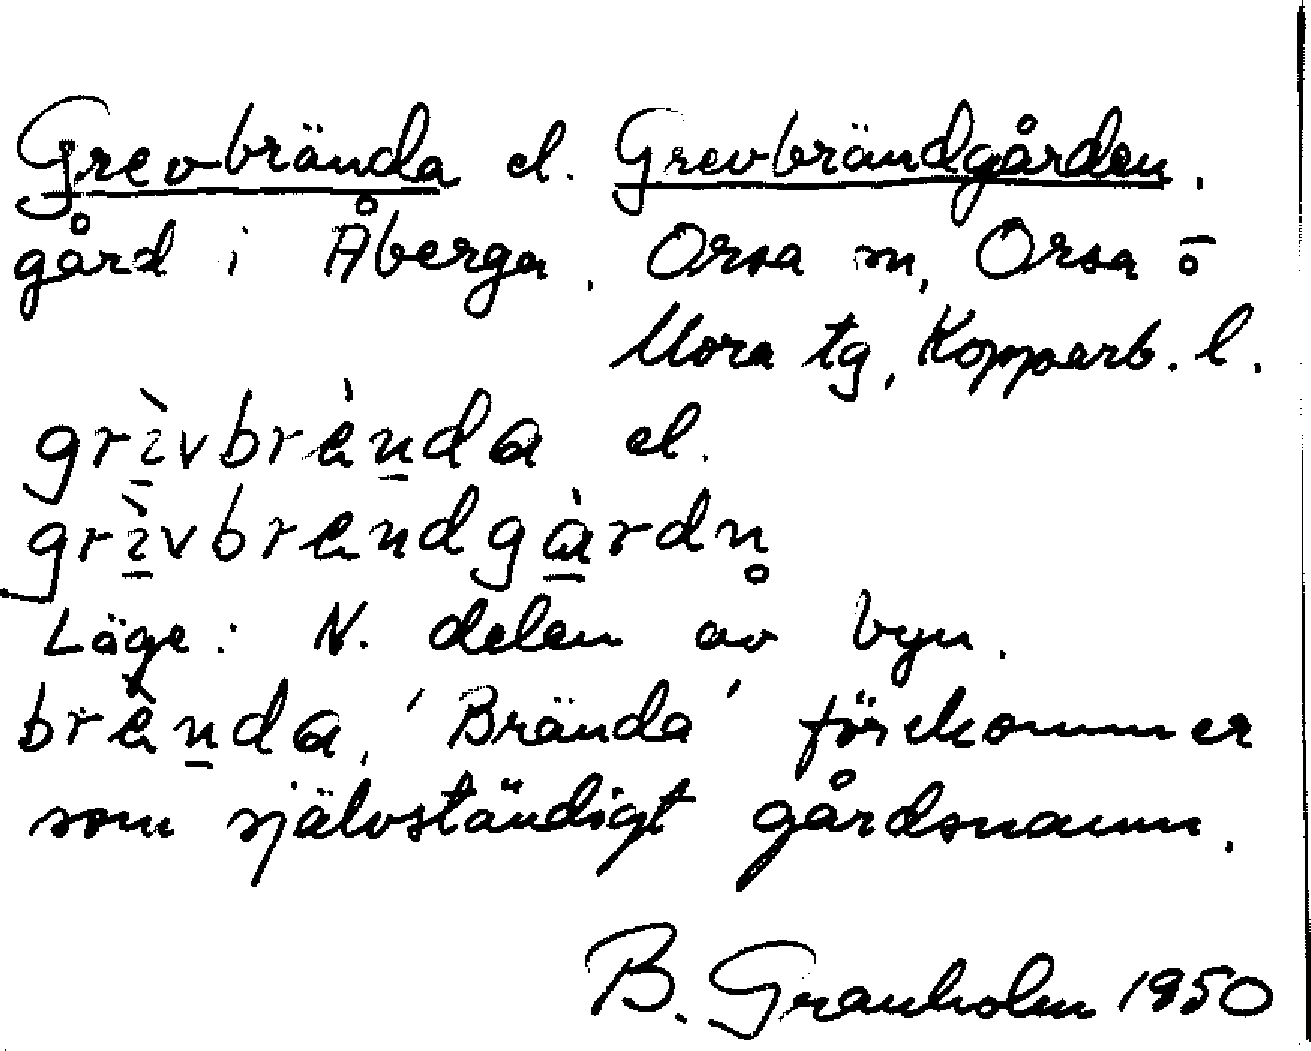 Grevbrända el. Grevbrändgården.
gård i Åberga. Orsa sn, Orsa o
Mora tg, Kopparb. l.
grìvbrènda el.
grìvbrendgàrdn̥
Läge: N. delen av byn.
brènda, 'Brända' förekommer
som självständigt gårdsnamn.
B. Granholm 1950